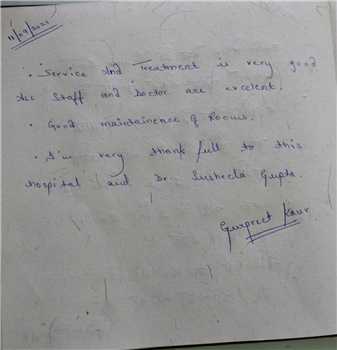 11/09/2021
• Service And Treatment is very good
All Staff and Doctor are excelent.
• Good maintainence of Rooms.
• I'm very thank full to this
hospital and Dr Susheela Gupta.
Gurpreet Kaur